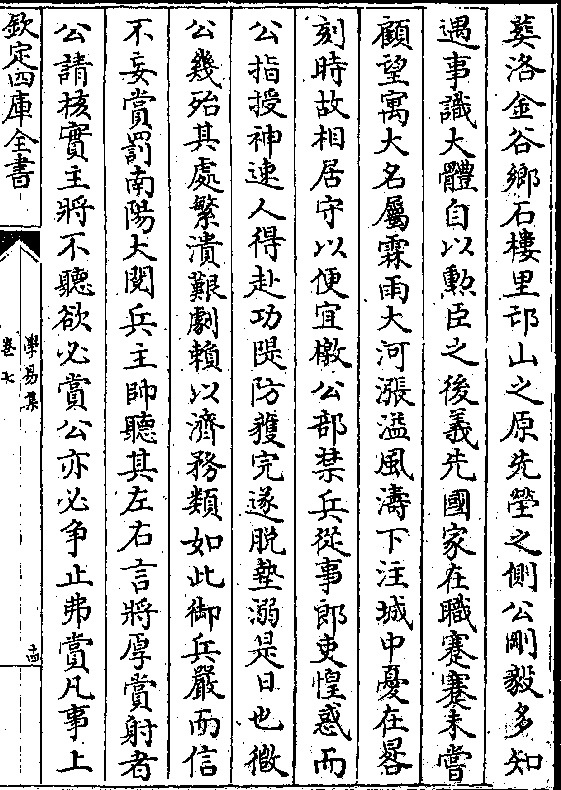 葬洛金谷鄉石樓里邙山之原先塋之側公剛毅多知
遇事識大體自以勲臣之後義先國家在職蹇蹇未嘗
顧望寓大名屬霖雨大河漲溢風濤下注城中憂在晷
刻時故相居守以便宜檄公部禁兵從事郎吏惶惑而
公指授神速人得赴功隄防獲完遂脱墊溺是日也微
公幾殆其處繁潰艱劇賴以濟務類如此御兵嚴而信
不妄賞罰南陽大閱兵主帥聽其左右言將厚賞射者
公請核實主將不聽欲必賞公亦必争止弗賞凡事上
欽定四庫全書
學易集
卷七
十四